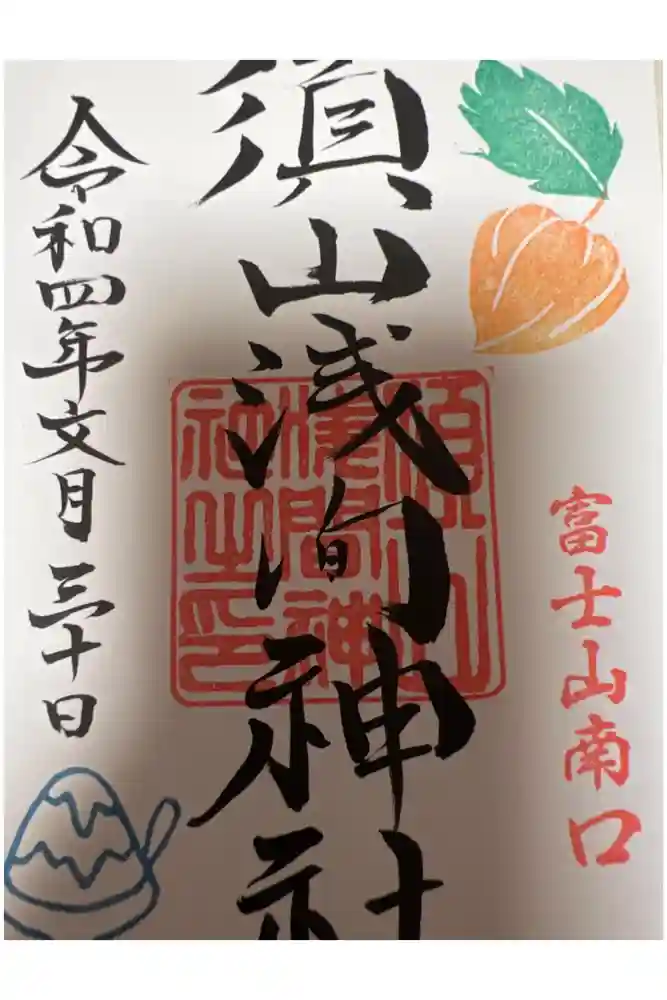 富士山南口
須山浅间神社
須山浅間神社之印
令和四年文月三十日